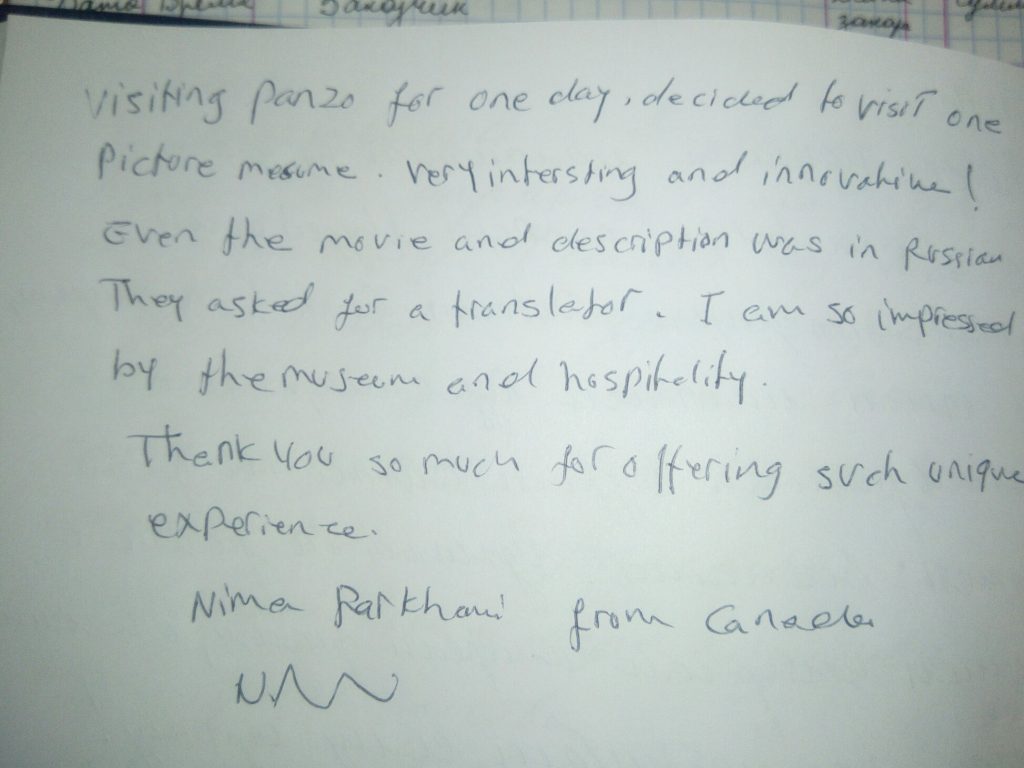 Дата Время Заказчик
заказ
visiting panzo for one day, decided to visit one
Picture mesume. very intersting and innovative!
Even the movie and description was in Russian
They asked for a translator. I am so impressed
by the museum and hospitality.
Thank you so much for offering such unique
experience.
Nima from Canada